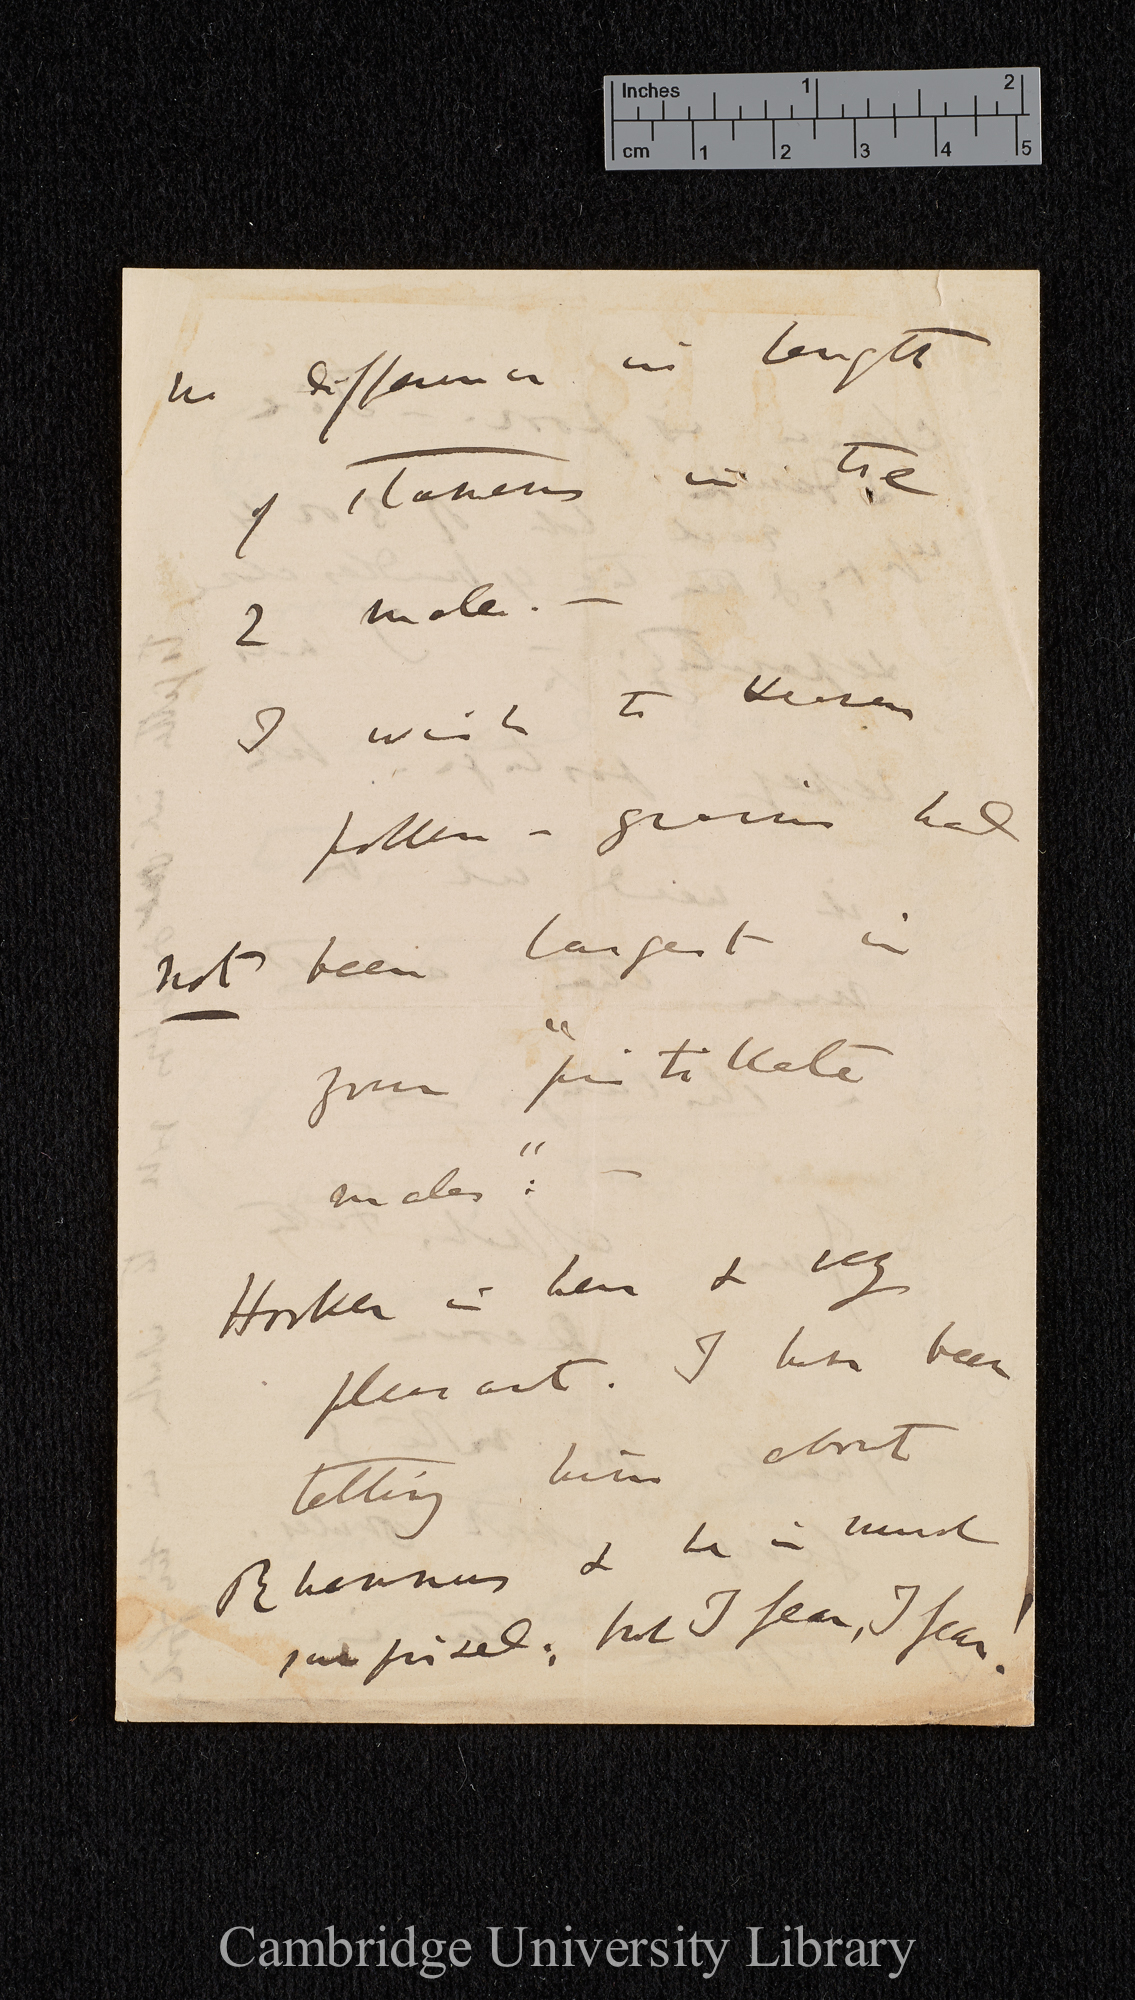 Inches 1 2
cm 1 2 3 4 5
no difference in length
of stamens in the
2 male. —
I wish to Heaven
pollen-grains had
not been largest in
your "pin stillate
males": —
Hooker is here & very
pleasant. I have been
telling him about
Rhamnus & he is much
surprised; but I fear, I fear!
Cambridge University Library